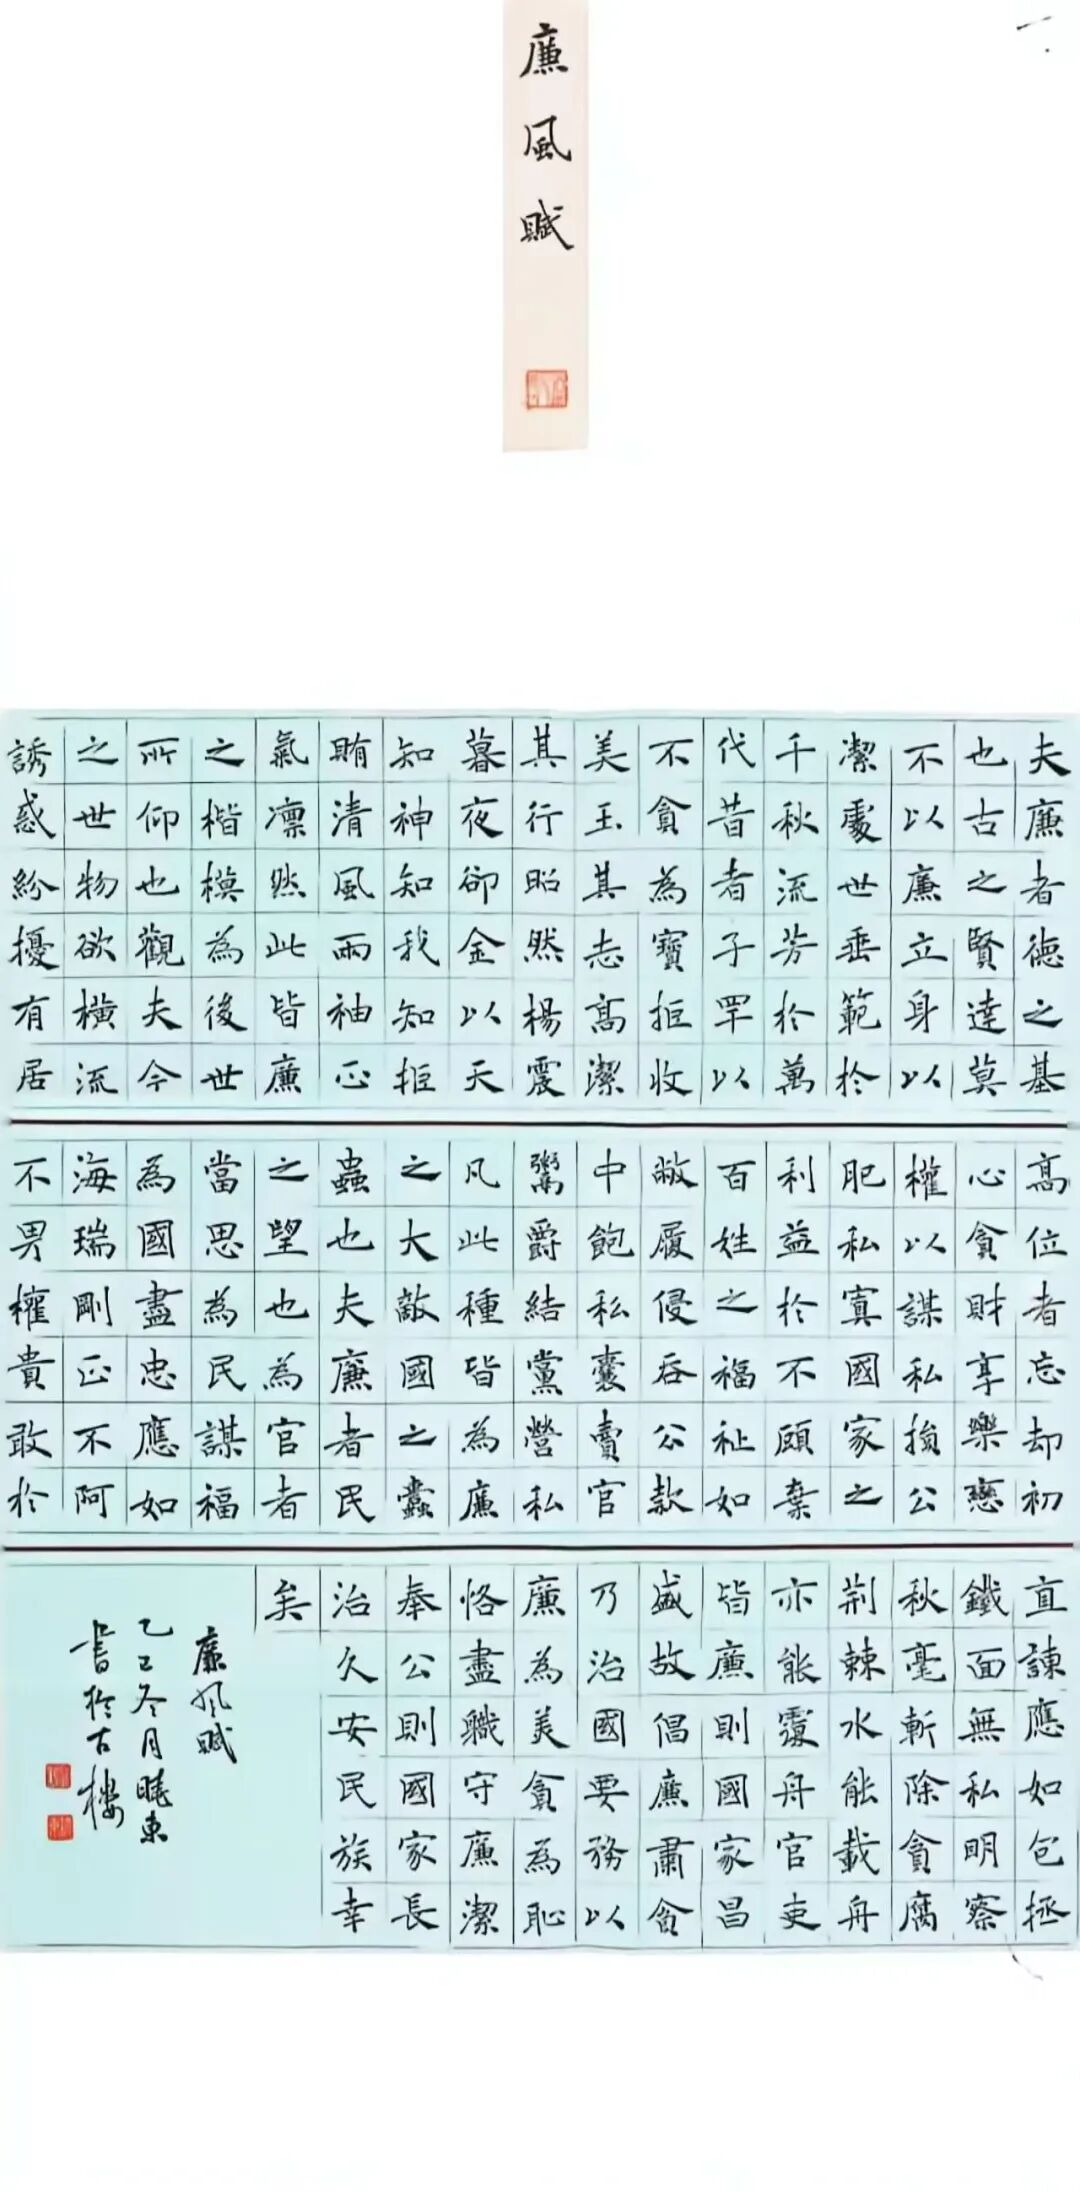 廉風賦
夫廉者德之基
也古之賢達莫
不以廉立身以
潔處世垂範於
千秋流芳於萬
代昔者子罕以
不貪為寶拒收
美玉其志高潔
其行昭然楊震
暮夜卻金以天
知神知我知拒
賄清風兩袖正
氣凛然此皆廉
之楷模為後世
所仰也觀夫今
之世物欲橫流
誘惑紛擾有居
高位者忘却初
心貪財享樂戀
權以謀私損公
肥私寘國家之
利益於不顧棄
百姓之福祉如
敝履侵吞公款
中飽私囊賣官
鬻爵結黨營私
凡此種皆為廉
之大敵國之蠹
蟲也夫廉者民
之望也為官者
當思為民謀福
為國盡忠應如
海瑞剛正不阿
不男權貴敢於
直諫應如包拯
鐵面無私明察
秋毫斬除貪腐
荆棘水能載舟
亦能覆舟官吏
皆廉則國家昌
盛故倡廉肅貪
乃治國要務以
廉為美貪為恥
恪盡職守廉潔
奉公則國家長
治久安民族幸
矣
廉風賦
乙巳冬月曉東
書於古樓